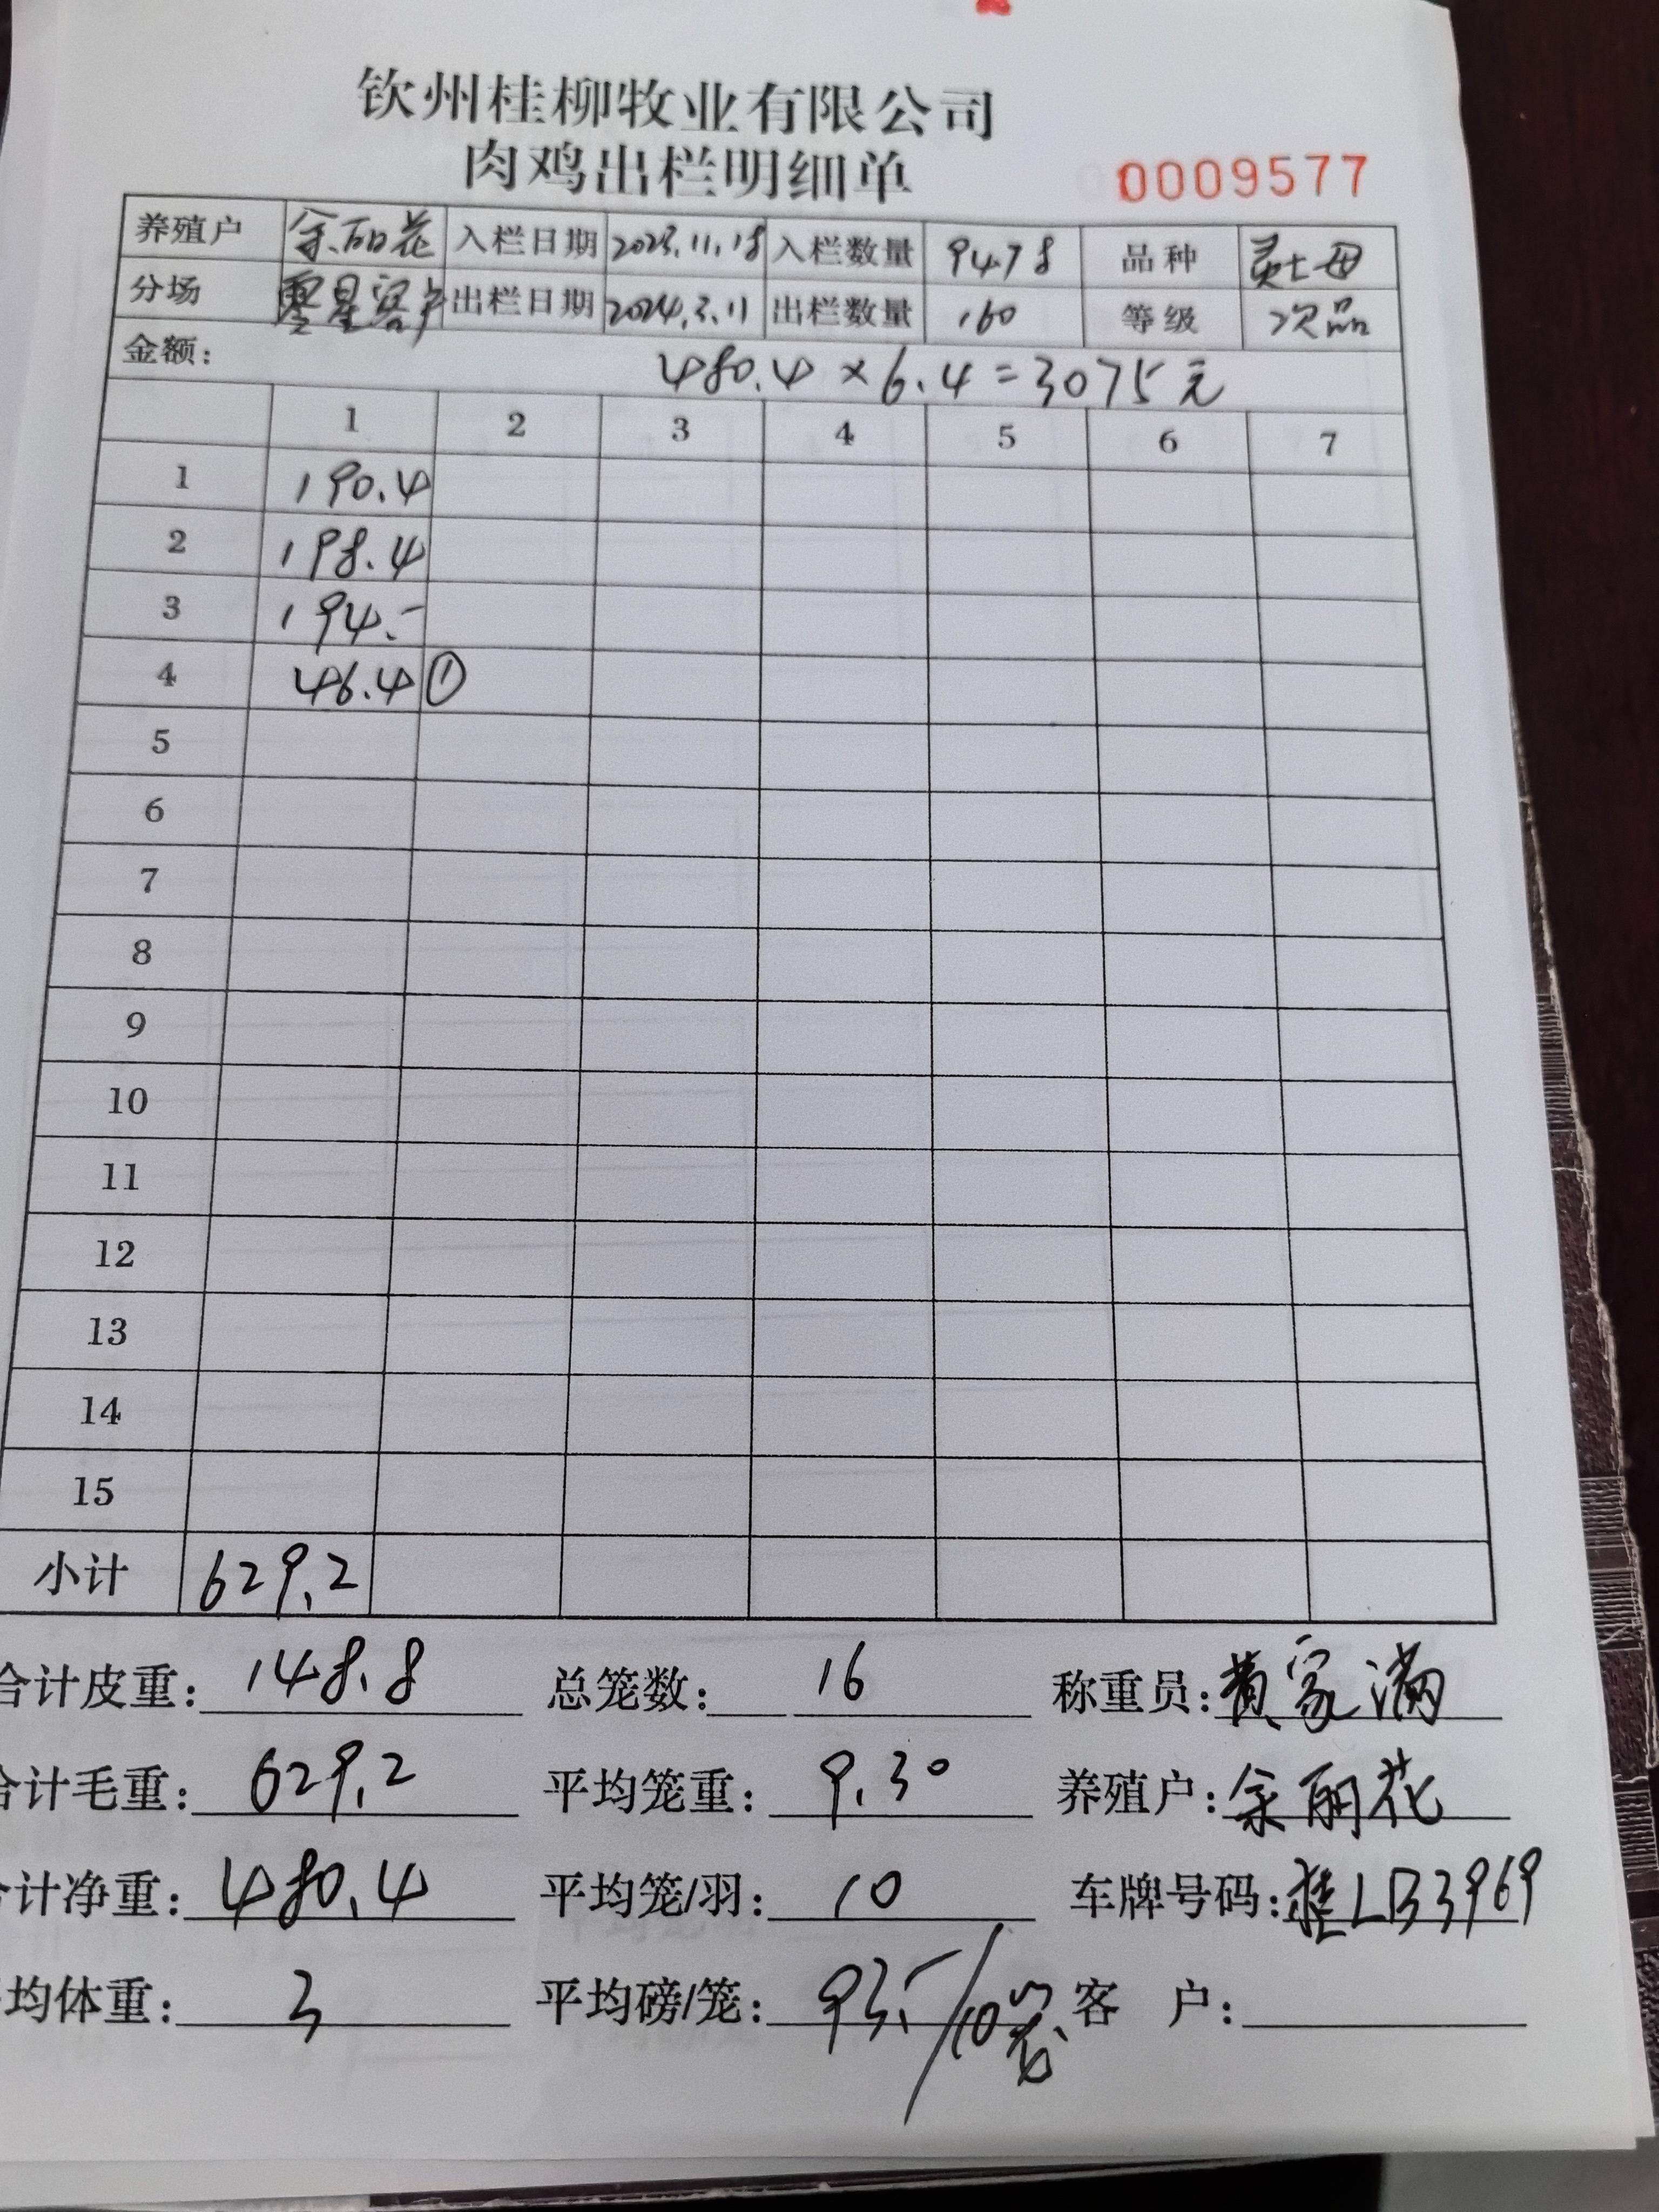 钦州桂柳牧业有限公司
肉鸡出栏明细单 0009577
养殖户 余丽花 入栏日期 2023.11.18 入栏数量 9478 品种
分场 零星客户 出栏日期 2024.3.11 出栏数量 160 等级 次品
金额: 480.4×6.4=3075元
1 2 3 4 5 6 7
1 190.4
2 198.4
3 194.-
4 46.4 ①
5
6
7
8
9
10
11
12
13
14
15
小计 629.2
合计皮重: 148.8 总笼数: 16 称重员: 黄家满
合计毛重: 629.2 平均笼重: 9.30 养殖户: 余丽花
计净重: 480.4 平均笼/羽: 10 车牌号码: 桂LB3969
均体重: 3 平均磅/笼: 93.-/10 客 户: